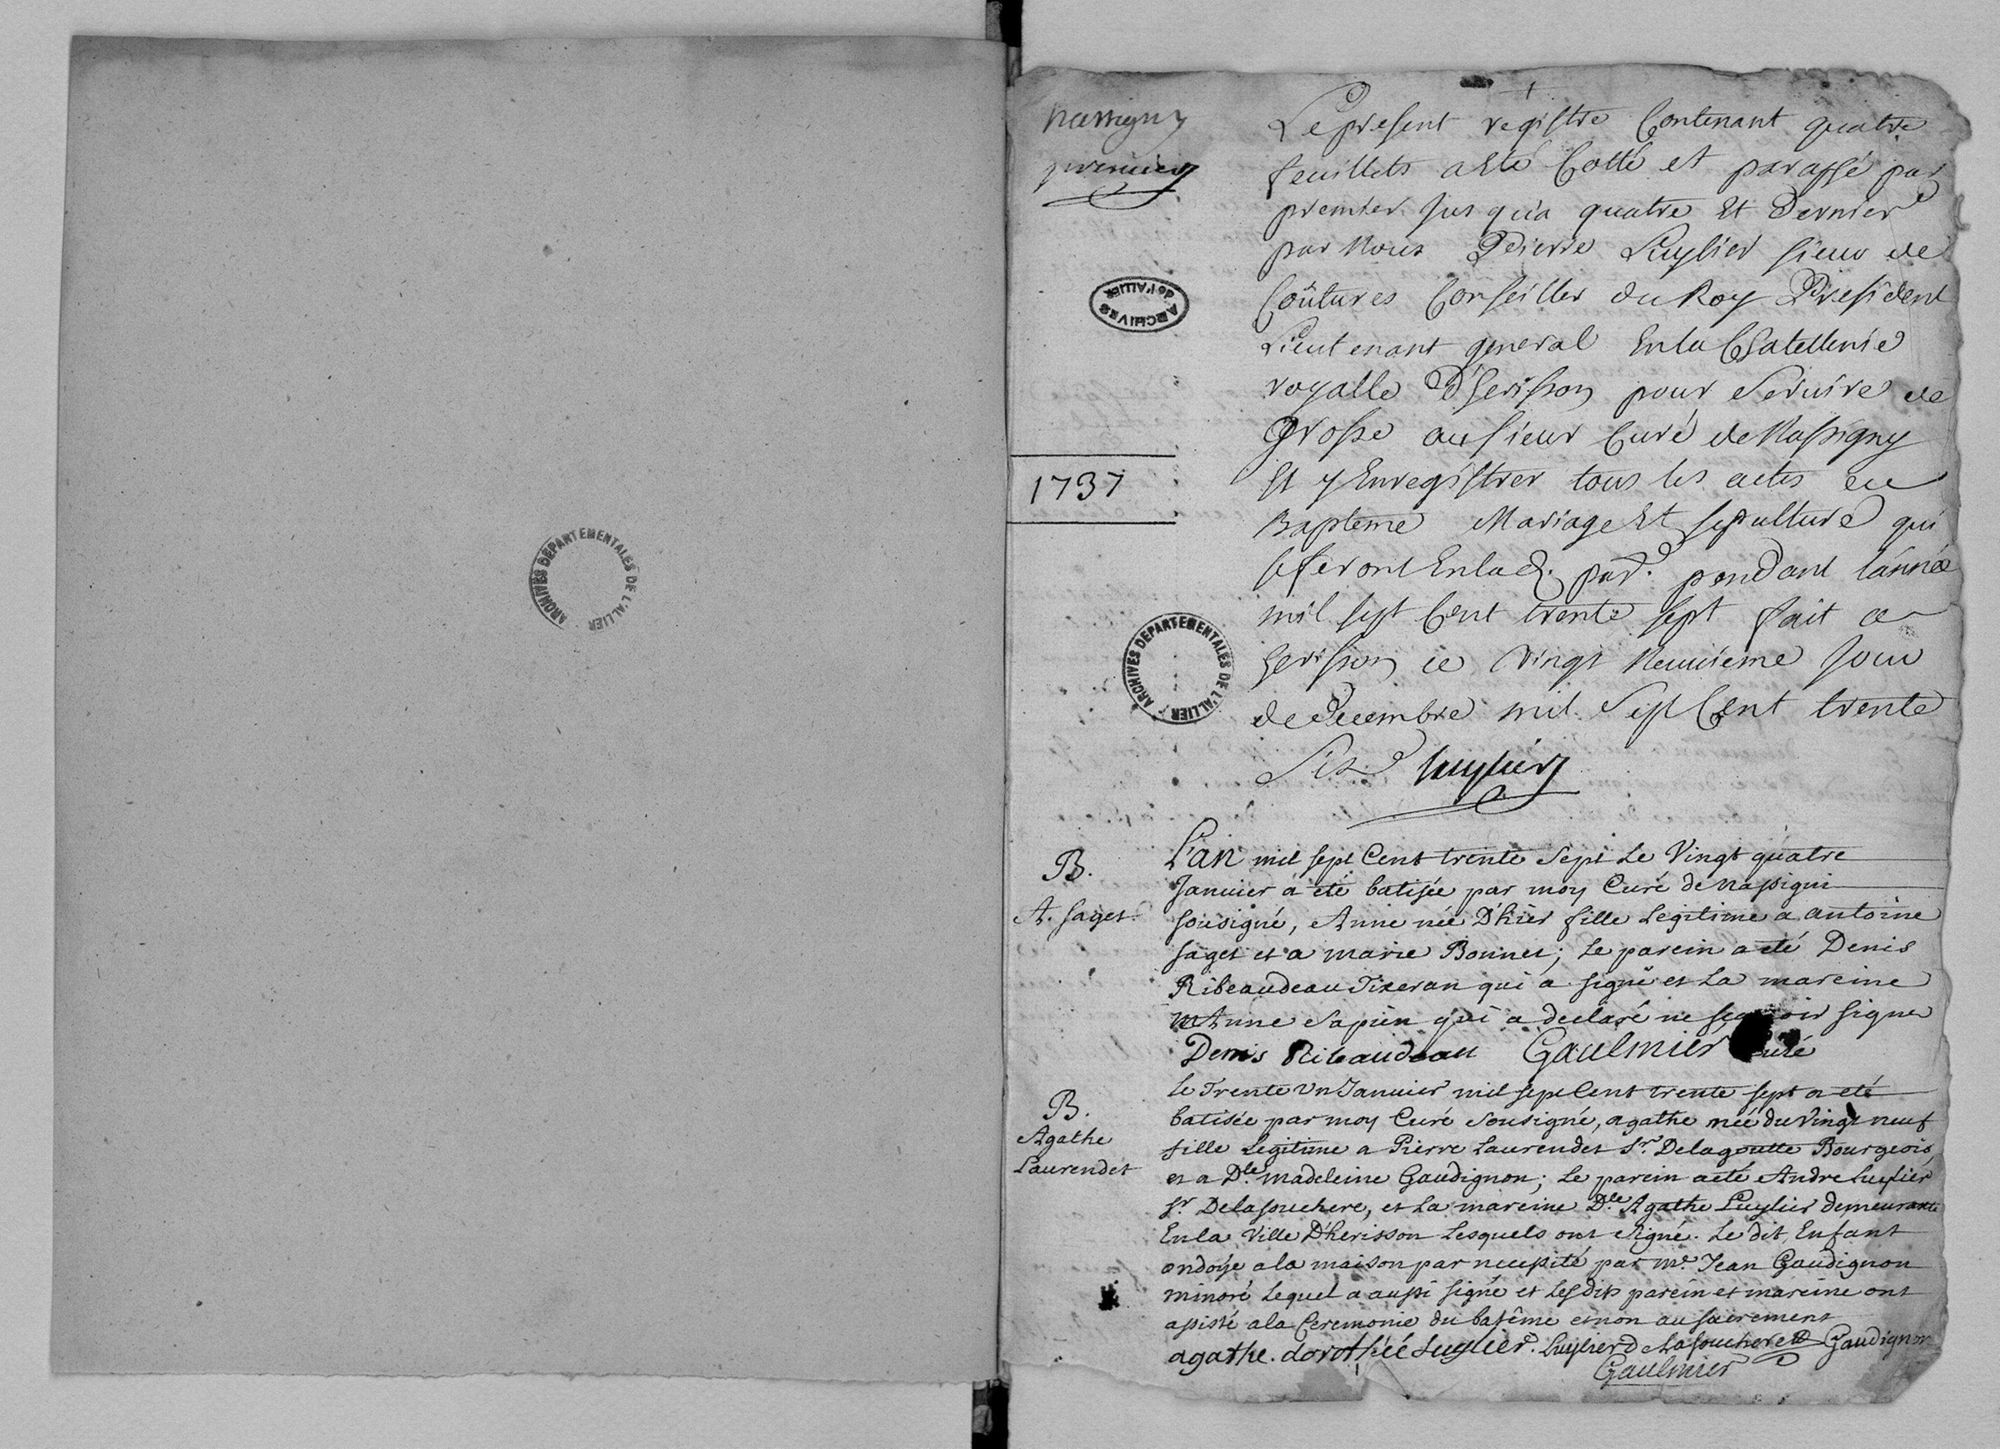 ARCHIVES DEPARTEMENTALES DE L'ALLIER
Nassigny
premier
Le present registre Contenant quatre
feuillets a Eté Cotté et paraffé par
premier Jus qu'a quatre Et Dernier
par Nous Pierre Luylier sieur de
Coûtures Conseiller du Roy President
Lieutenant general En la Chatellenie
royalle D'herisson pour Servire de
Grosse au sieur Curé de Nassigny
Et y Enregistrer tous les actes de
Bapteme Mariage Et sepulture qui
se feront En lad. par. pendant l'année
mil sept Cent trente sept fait a
herisson ce vingt Neuvieme Jour
de Decembre mil Sept Cent trente
Six Luylier
ARCHIVES de l'ALLIER
1737
ARCHIVES DEPARTEMENTALES DE L'ALLIER
B.
A. saget
L'an mil sept Cent trente sept Le Vingt quatre
Janvier a eté batisée par moy Curé de nassigni
sousigné, Anne née D'hier fille Legitime a antoine
saget et a marie Bonnet; Le parein a eté Denis
Ribeaudeau Tixeran qui a signé et La mareine
Anne Sapien qui a declaré ne sçavoir signer
Denis Ribaudeau Gaulmier Curé
B.
Agathe
Laurendet
le Trente Un Janvier mil sept Cent trente sept a eté
batisée par moy Curé Sousigné, agathe née du Vingt neuf
fille Legitime a Pierre Laurendet Sr. Delagoutte Bourgeois,
et a Dlle. madeleine Gaudignon; Le parein a eté Andre Luylier
Sr. Delasouchere, et La mareine Dlle. Agathe Luylier demeurante
En la Ville D'herisson Lesquels ont signé. Le dit Enfant
ondoÿe a la maison par necessité par Me. Jean Gaudignon
minoré Lequel a aussi signé et Les dits parein et mareine ont
assisté a la Ceremonie du batême et non au sacrement
agathe. dorothée Luylier. Luylier de Lasouchere Gaudignon
Gaulmier